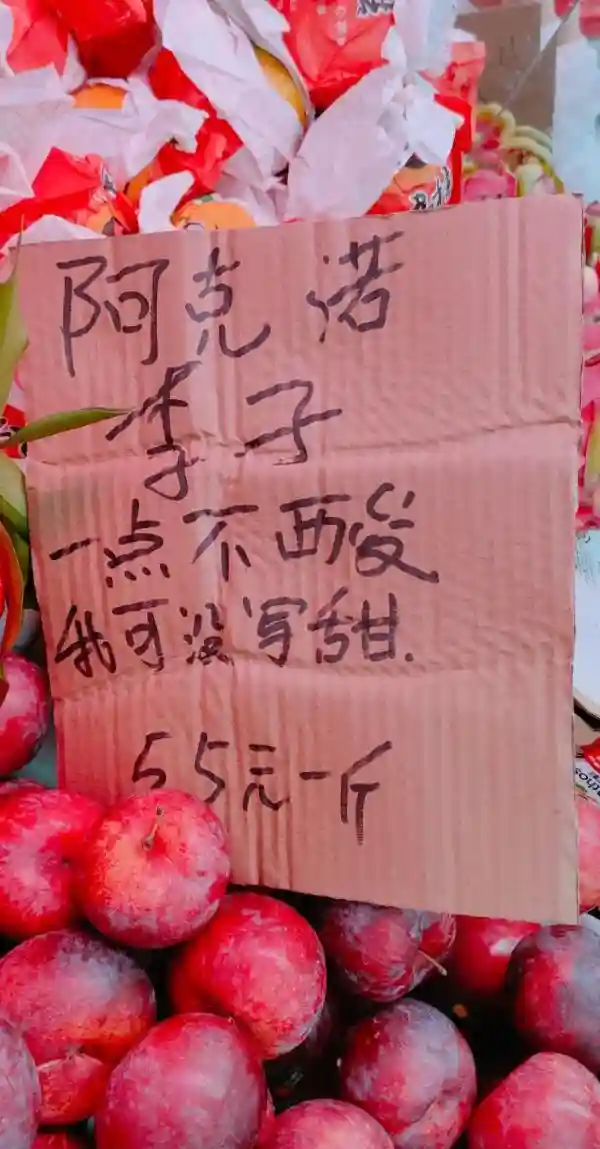 阿克诺
李子
一点不酸
我可没写甜.
55元一斤